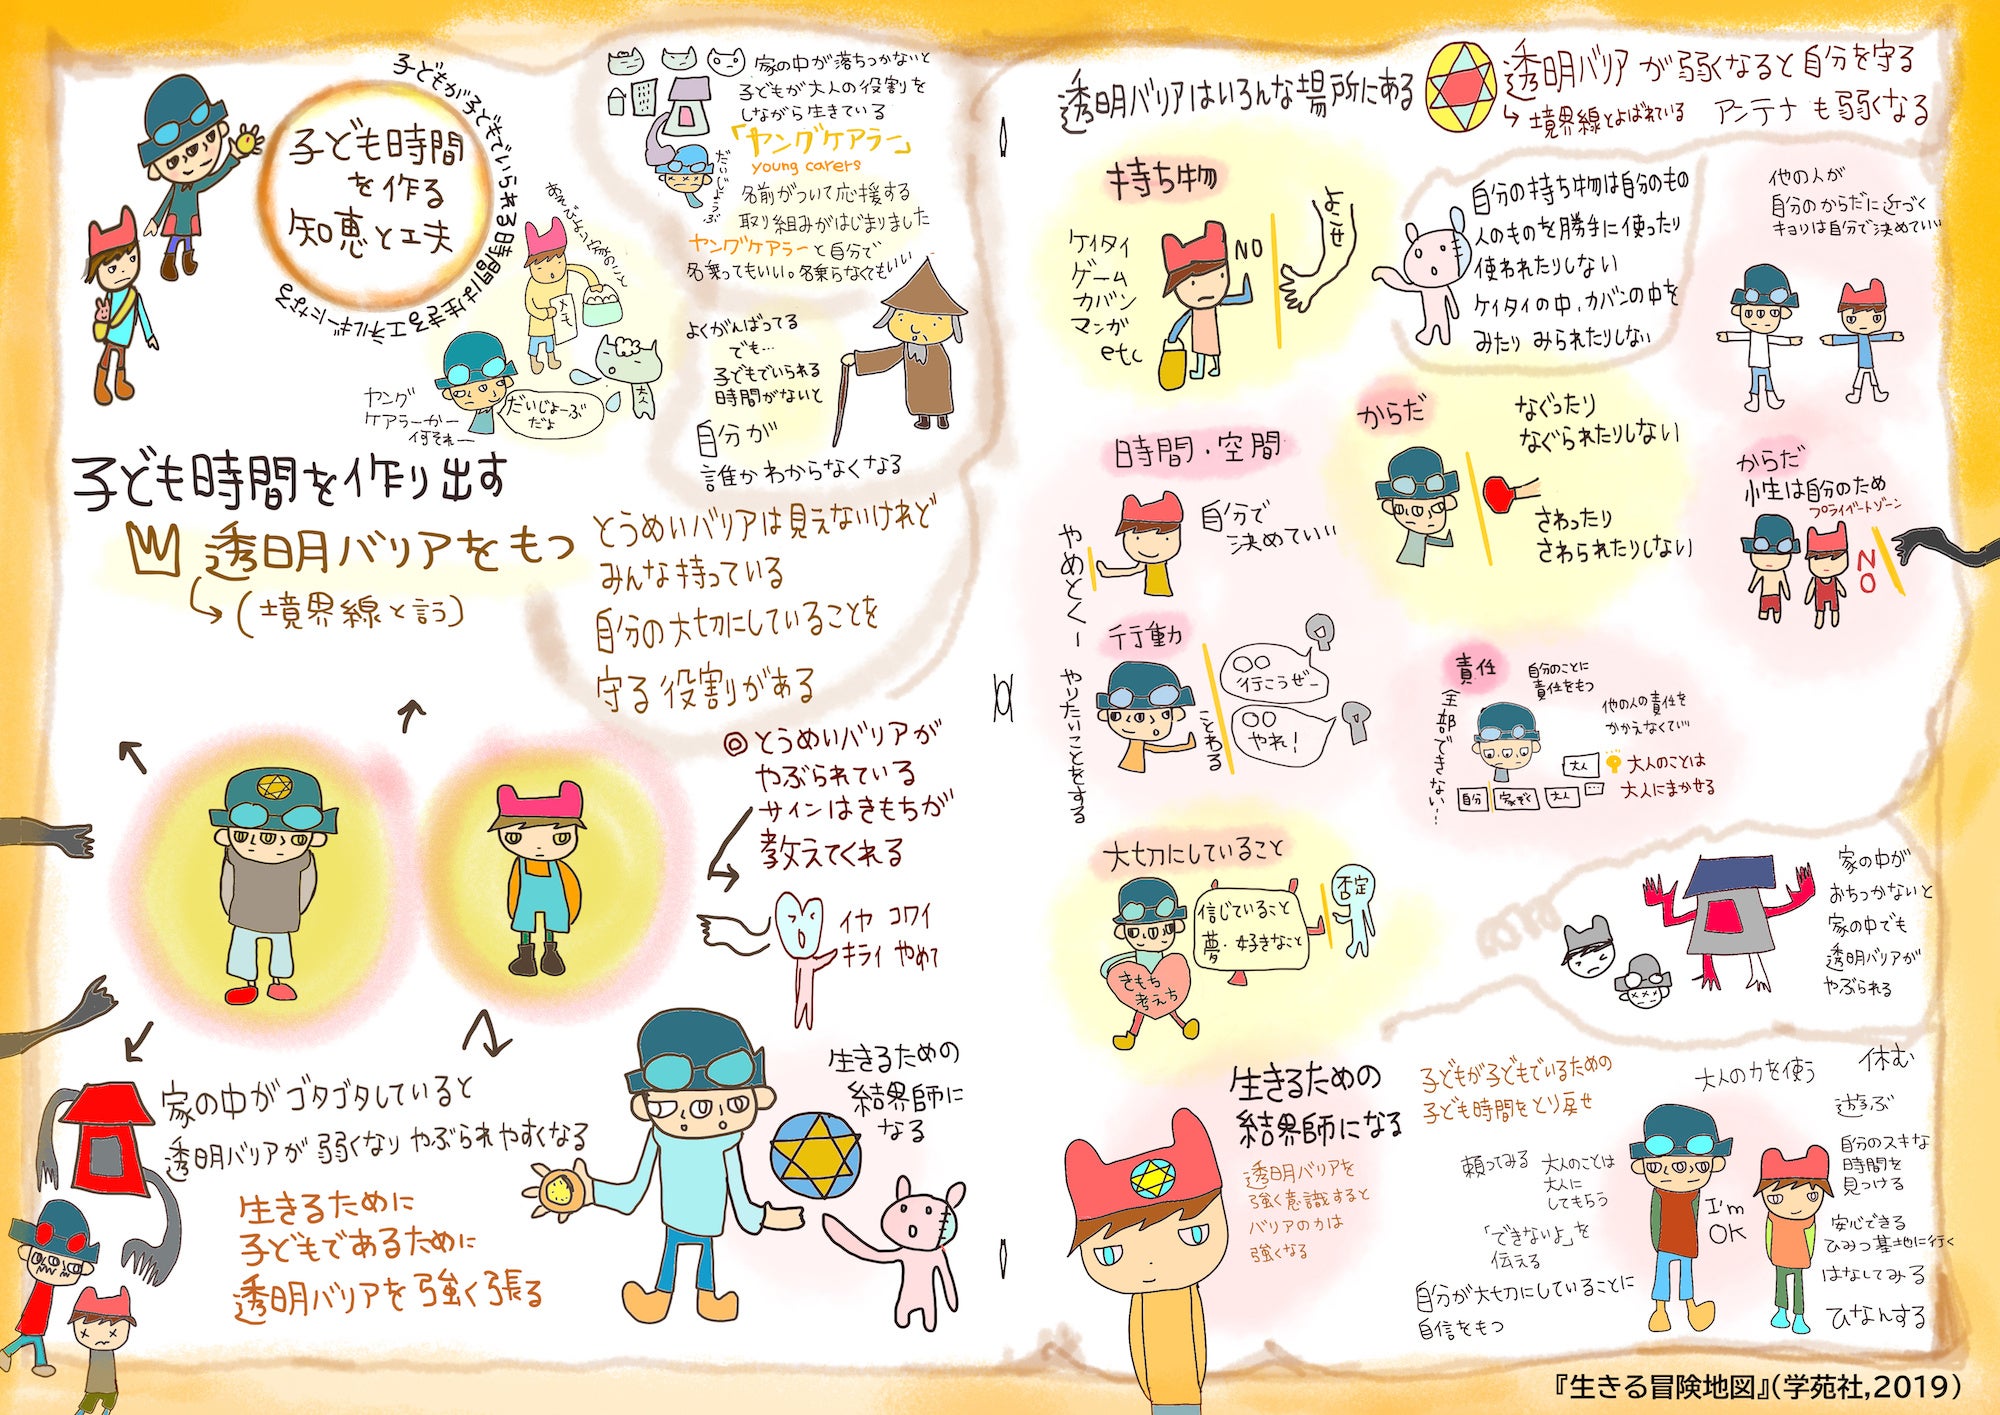 子ども時間
を作る
知恵と工夫
子どもが子どもでいられる時間は生きるエネルギーになる
家の中が落ちつかないと
子どもが大人の役割を
しながら生きている
「ヤングケアラー」
young carers
名前がついて応援する
取り組みがはじまりました
ヤングケアラーと自分で
名乗ってもいい。名乗らなくもいい
だいじょうぶ
メモ
ヤング
ケアラーがー
何それー
だいじょーぶ
だよ
大人
よくがんばってる
でも…
子どもでいられる
時間がないと
自分が
誰かわからなくなる
子ども時間を作り出す
透明バリアをもつ
(境界線と言う)
とうめいバリアは見えないけれど
みんな持っている
自分の大切にしていることを
守る役割がある
◎とうめいバリアが
やぶられている
サインはきもちが
教えてくれる
イヤ コワイ
キライ やめて
家の中がゴタゴタしていると
透明バリアが弱くなりやぶられやすくなる
生きるために
子どもであるために
透明バリアを強く張る
生きるための
結界師に
なる
透明バリアはいろんな場所にある
透明バリアが弱くなると自分を守る
境界線とよばれている アンテナも弱くなる
持ち物
ケイタイ
ゲーム
カバン
マンガ
etc
NO
よこせ
自分の持ち物は自分のもの
人のものを勝手に使ったり
使われたりしない
ケイタイの中、カバンの中を
みたり みられたりしない
他の人が
自分のからだに近づく
キョリは自分で決めていい
時間・空間
自分で
決めていい
やめとくー やりたいことをする
からだ
なぐったり
なぐられたりしない
さわったり
さわられたりしない
からだ
小生は自分のため
プライベートゾーン
NO
行動
ことわる
○○
行こうぜー
○○
やれ!
責任
自分のことに
責任をもつ
他の人の責任を
かかえなくていい
全部できない…
自分
家ぞく
大人
大人
大人のことは
大人にまかせる
大切にしていること
きもち
考えち
信じていること
夢・好きなこと
否定
家の中が
おちつかないと
家の中でも
透明バリアが
やぶられる
生きるための
結界師になる
透明バリアを
強く意識すると
バリアのカは
強くなる
子どもが子どもでいるための
子ども時間をとり戻せ
頼ってみる
大人のことは
大人に
してもらう
「できないよ」を
伝える
自分が大切にしていることに
自信をもつ
大人の力を使う
休む
遊ぶ
自分のスキな
時間を
見つける
安心できる
ひみつ基地に行く
はなしてみる
ひなんする
I'm
OK
『生きる冒険地図』(学苑社,2019)